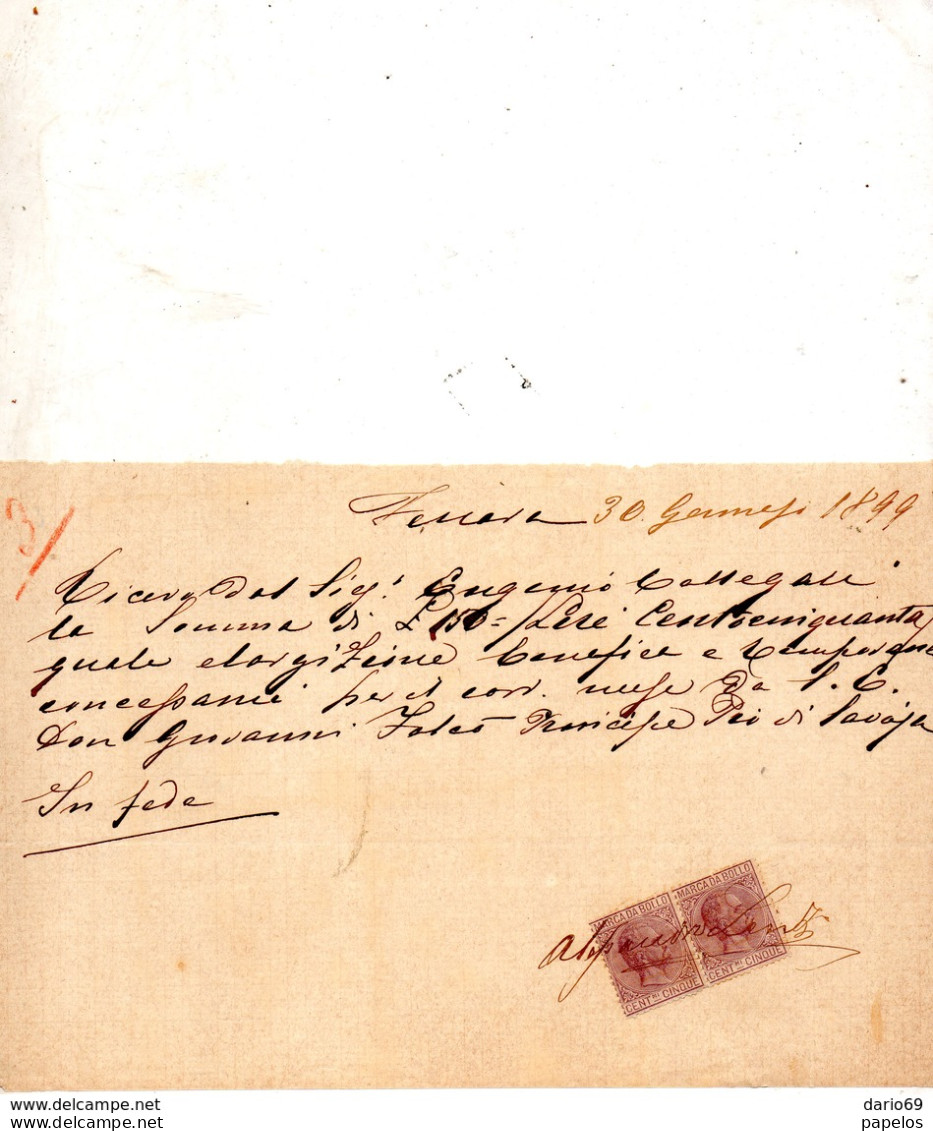 3/
Ferrara 30. Gennajo 1899
Ricevo dal Sigr. Eugenio
la Somma di £ 150=/Lire Centocinquanta/
quale elargizione benefica e temporanea
concessami per il corr. mese da S. E.
Don Giovanni Falcò Principe Pio di Savoja
In fede
MARCA DA BOLLO MARCA DA BOLLO
Alessandro
CENT.MI CINQUE CENT.MI CINQUE
dario69
papelos